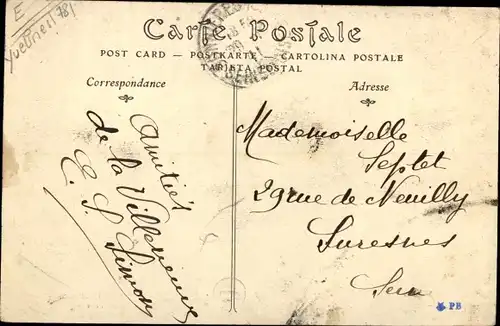 E
Yvelines (78)
Carte Postale
POST CARD — POSTKARTE — CARTOLINA POSTALE
TARJETA POSTAL
Correspondance
Adresse
Amitiés
de la Villeneuve
E. S. Simon
Mademoiselle
Septet
29 rue de Neuilly
Suresnes
Seine
PB